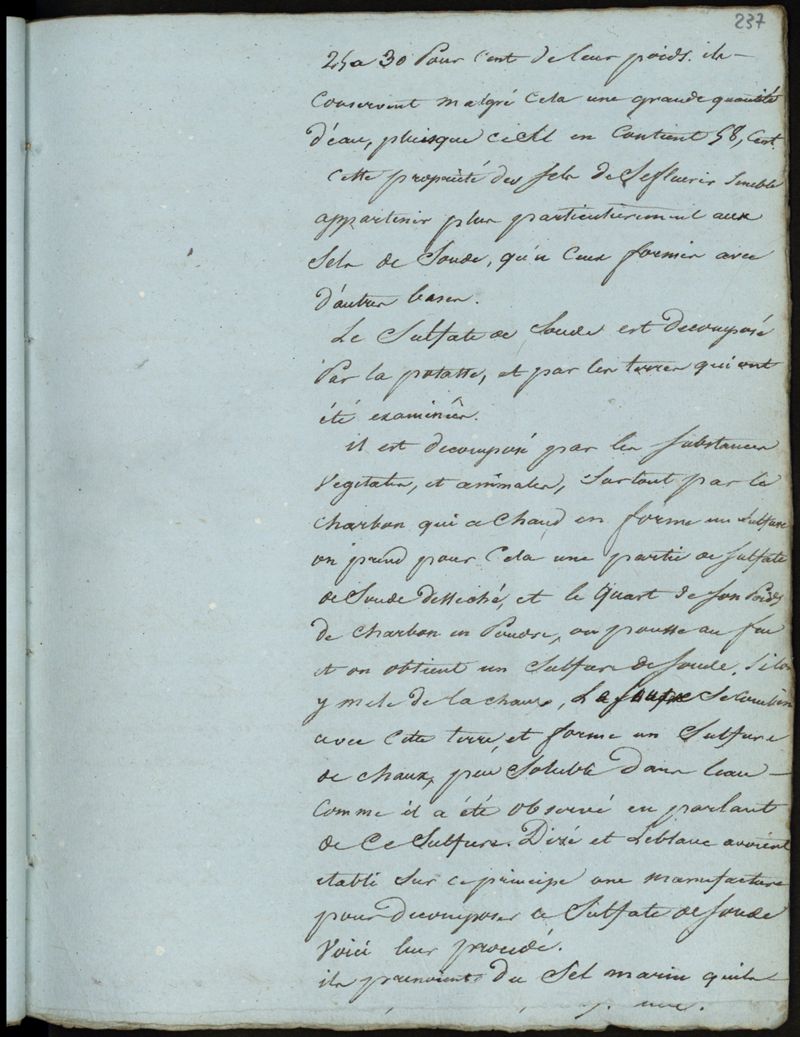 237
25 a 30 Pour Cent de leur poids. ils
Conservent malgré Cela une grande quantité
d'eau, puisque celui en Contient 58, Cent.
Cette propriété des sels de S'efleurir Semble
appartenir plus particulièrement aux
Sels de Soude, qu'a Ceux formés avec
d'autres bases.
Le Sulfate de Soude est decomposé
Par la potasse, et par les terres qui ont
été examinées.
il est decomposé par les substances
Vegetales, et animales, Surtout par le
Charbon qui a Chaud en forme un Sulfure
on prend pour Cela une partie de sulfate
de Soude desseché, et le Quart de son Poids
de Charbon en Poudre, on pousse au feu
et on obtient un Sulfure de soude. Si l'on
y mele de la chaux, Le soufre Se combine
avec Cette terre et forme un Sulfure
de Chaux, peu Soluble Dans l'eau
Comme il a été observé en parlant
de Ce Sulfure. Dizé et Leblanc avoient
etabli Sur ce principe une manufacture
pour decomposer le Sulfate de soude
Voici leur procedé.
ils prenoient du Sel marin qu'ils